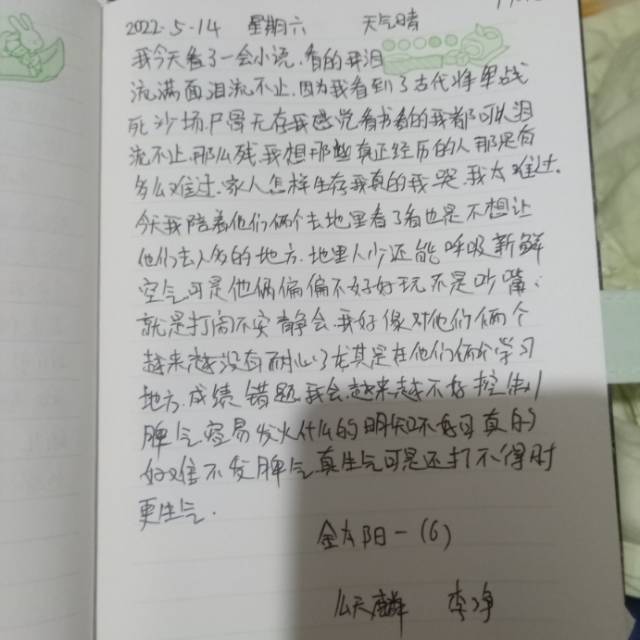 2022.5.14 星期六 天气晴
我今天看了一会小说.看的我泪
流满面泪流不止.因为我看到了古代将军战
死沙场.尸骨无存我感觉看书看的我都可以泪
流不止.那么残.我想那些真正经历的人那是有
多么难过.家人怎样生存我真的我哭.我太难过.
今天我陪着他们俩个去地里看了看也是不想让
他们去人多的地方.地里人少还能呼吸新鲜
空气可是他俩偏偏不好好玩不是吵嘴.
就是打闹不安静会.我好像对他们俩个
越来越没有耐心了尤其是在他们俩个学习
地方.成绩.错题.我会越来越不好控制
脾气容易发火什么的明知不好可真的
好难不发脾气真生气可是还打不得时
更生气.
金太阳一(6)
李净